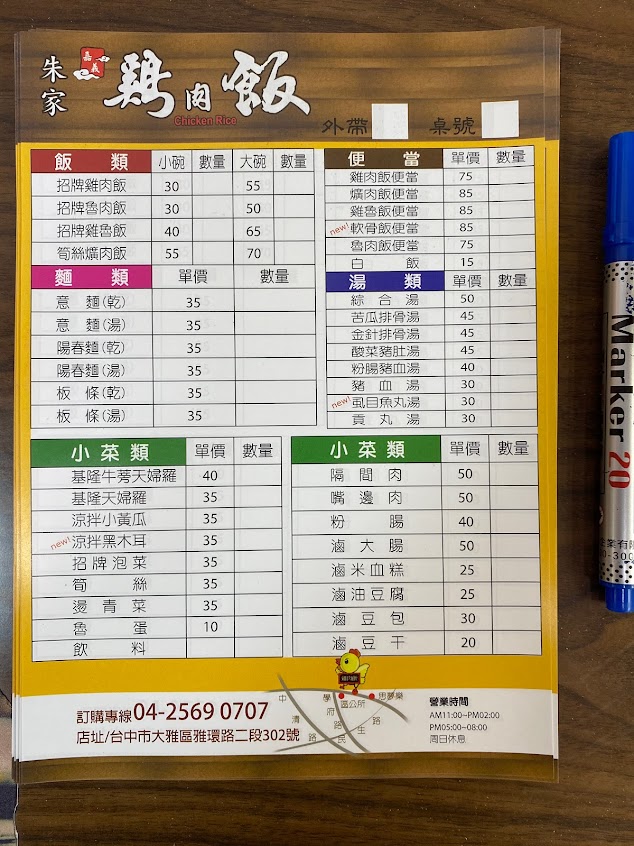 朱家
嘉義
鶏肉飯
Chicken Rice
外帶 桌號
飯類 小碗 數量 大碗 數量
招牌雞肉飯 30 55
招牌魯肉飯 30 50
招牌雞魯飯 40 65
筍絲爌肉飯 55 70
麵類 單價 數量
意麵(乾) 35
意麵(湯) 35
陽春麵(乾) 35
陽春麵(湯) 35
板條(乾) 35
板條(湯) 35
便當 單價 數量
雞肉飯便當 75
爌肉飯便當 85
雞魯飯便當 85
new! 軟骨飯便當 85
魯肉飯便當 75
白飯 15
湯類 單價 數量
綜合湯 50
苦瓜排骨湯 45
金針排骨湯 45
酸菜豬肚湯 45
粉腸豬血湯 40
豬血湯 30
new! 虱目魚丸湯 30
貢丸湯 30
小菜類 單價 數量
基隆牛蒡天婦羅 40
基隆天婦羅 35
涼拌小黃瓜 35
new! 涼拌黑木耳 35
招牌泡菜 35
筍絲 35
燙青菜 35
魯蛋 10
飲料
小菜類 單價 數量
隔間肉 50
嘴邊肉 50
粉腸 40
滷大腸 50
滷米血糕 25
滷油豆腐 25
滷豆包 30
滷豆干 20
訂購專線04-2569 0707
店址/台中市大雅區雅環路二段302號
中清路
學府路
區公所
思夢樂
民生路
營業時間
AM11:00~PM02:00
PM05:00~08:00
周日休息
Marker 20